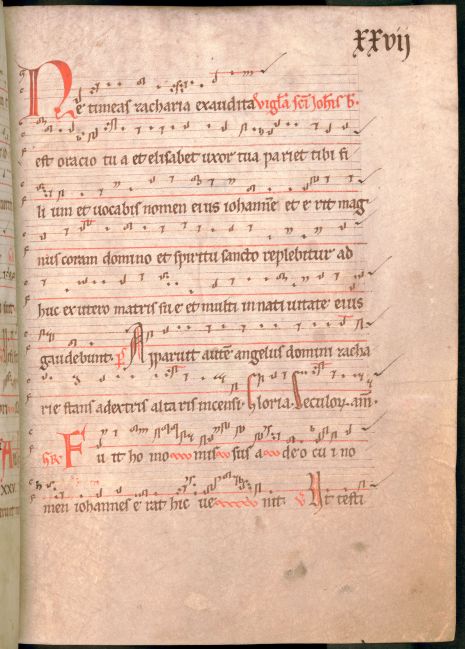 xxvij
Ne timeas zacharia exaudita Vigł'a sc̄i Joh̄is b.
est oracio tu a et elisabet uxor tua pariet tibi fi
li um et uocabis nomen eius iohannē et e rit mag
nus coram domino et spiritu sancto replebitur ad
huc ex utero matris su e et multi in nati uitate eius
gaudebunt. P Apparuit autē angelus domini zacha
rie stans a dextris alta ris incensi. Gloria. Seculor. am̄.
Fu it ho mo mis sus a de o cu i no
men iohannes e rat hic ue nit. V Ut testi